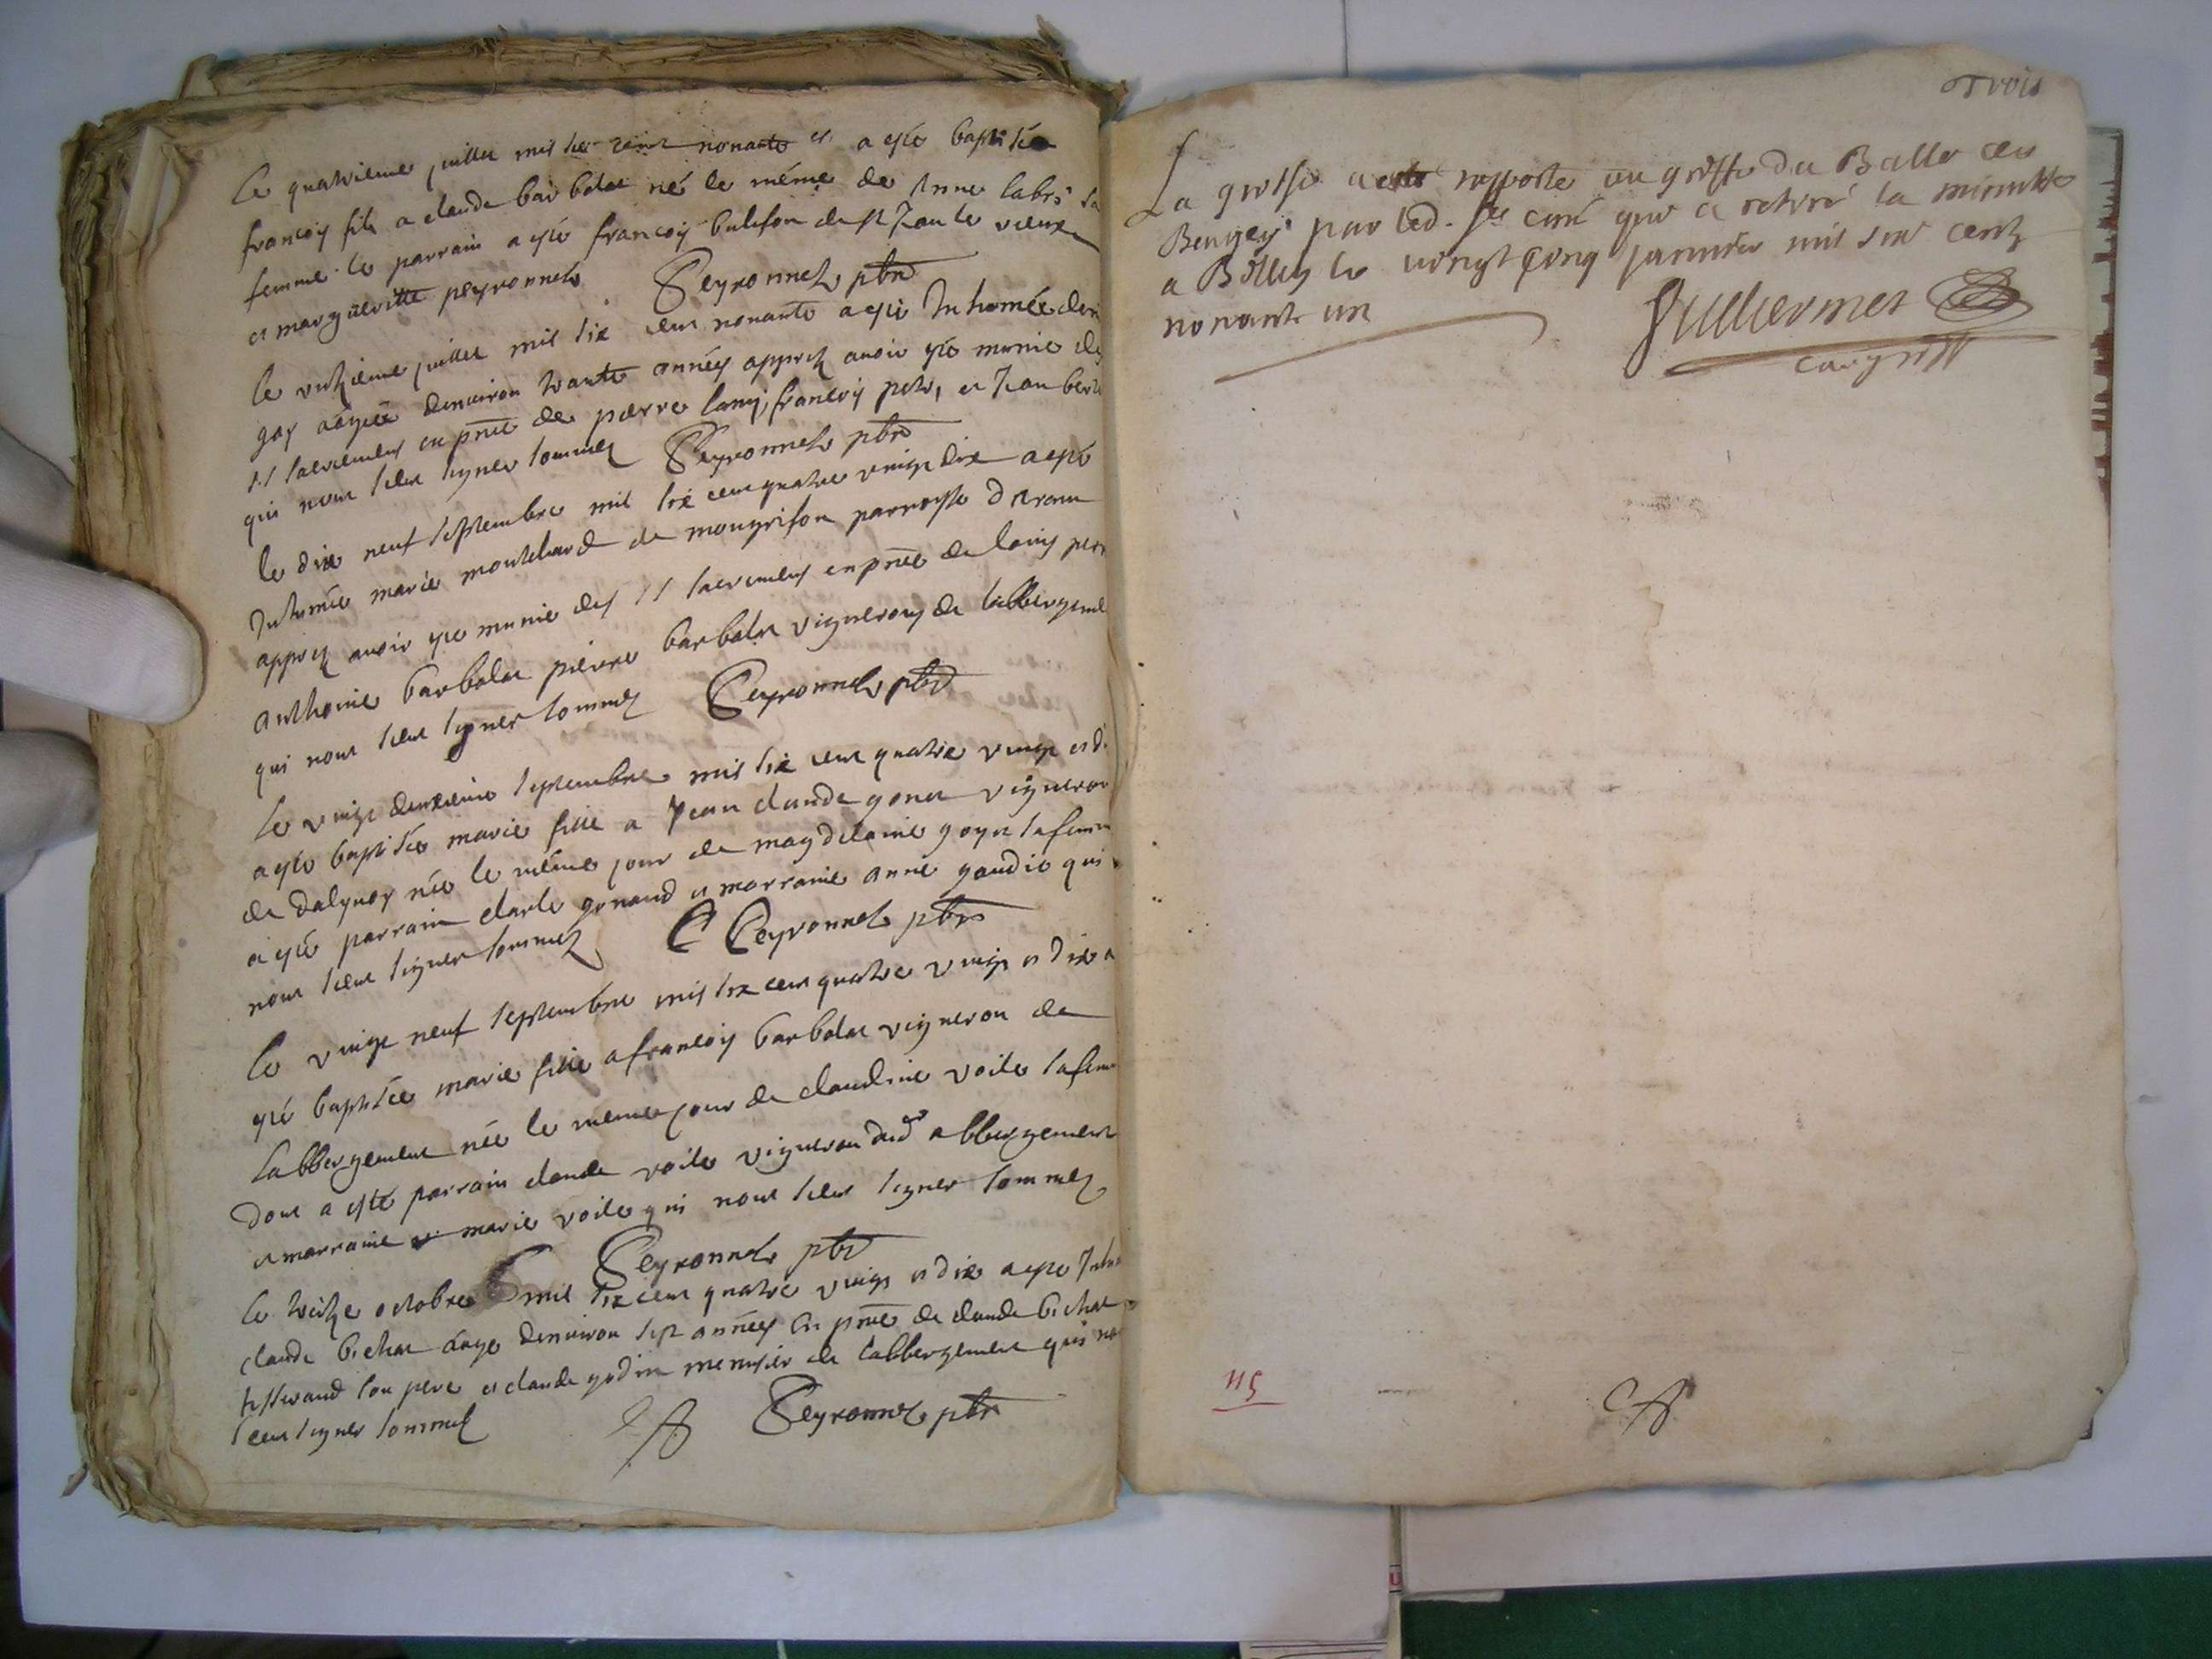 Le quatrieme juillet mil six cent nonante et a esté baptisé
francois fils a claude barbolat né le méme de Anne labri sa
femme le parrain a esté francois bulifon de st Jean le vieux
et margueritte peyronnet Peyronnet pbre
le juillet mil six cent nonante a esté Inhumée
gay aagée denuiron trante années apprez auoir esté munie des
SS sacremens en pnce de pierre lany, francois petit, et Jean
qui nont sceu signer sommez Peyronnet pbre
le dix neuf septembre mil six cent quatre vingt dix a esté
Inhumée marie de mongrifon parroisse
apprez auoir esté munie des SS sacremens en pnce de louis
anthoine barbolat pierre barbolat vignerons de labbergement
qui nont sceu signer sommez Peyronnet pbre
Le vingt deuxieme septembre mil six cent quatre vingt et di
a esté baptisée marie fille a Jean claude gonet vigneron
de dalyuoy née le méme jour de magdelaine goyet sa femm
a esté parrain charle gonand et marraine anne gaudie qui
nont sceu signer sommez Peyronnet pbre
Le vingt neuf septembre mil six cent quatre vingt et dix a
esté baptisée marie fille a francois barbolat vigneron de
Labbergement née le meme jour de claudine voile sa fem
dont a esté parrain claude voile vigneron dud abbergement
et marraine marie voile qui nont sceu signer sommez
Peyronnet pbre
Le treize octobre mil six cent quatre vingt et dix a esté Inhu
claude bichat aagé denuiron sept années en pnce de claude bichat
tisserand son pere et claude godin menusier de labbergement qui no
sceu signer sommez Peyronnet pbre
Trois
La grosse a esté rapporté au greffe du Balle de
Beugey par led. Sr curé qui a retiré la minutte
a Belley le vingt cinq januier mil six cent
nonante un Julliermet
115